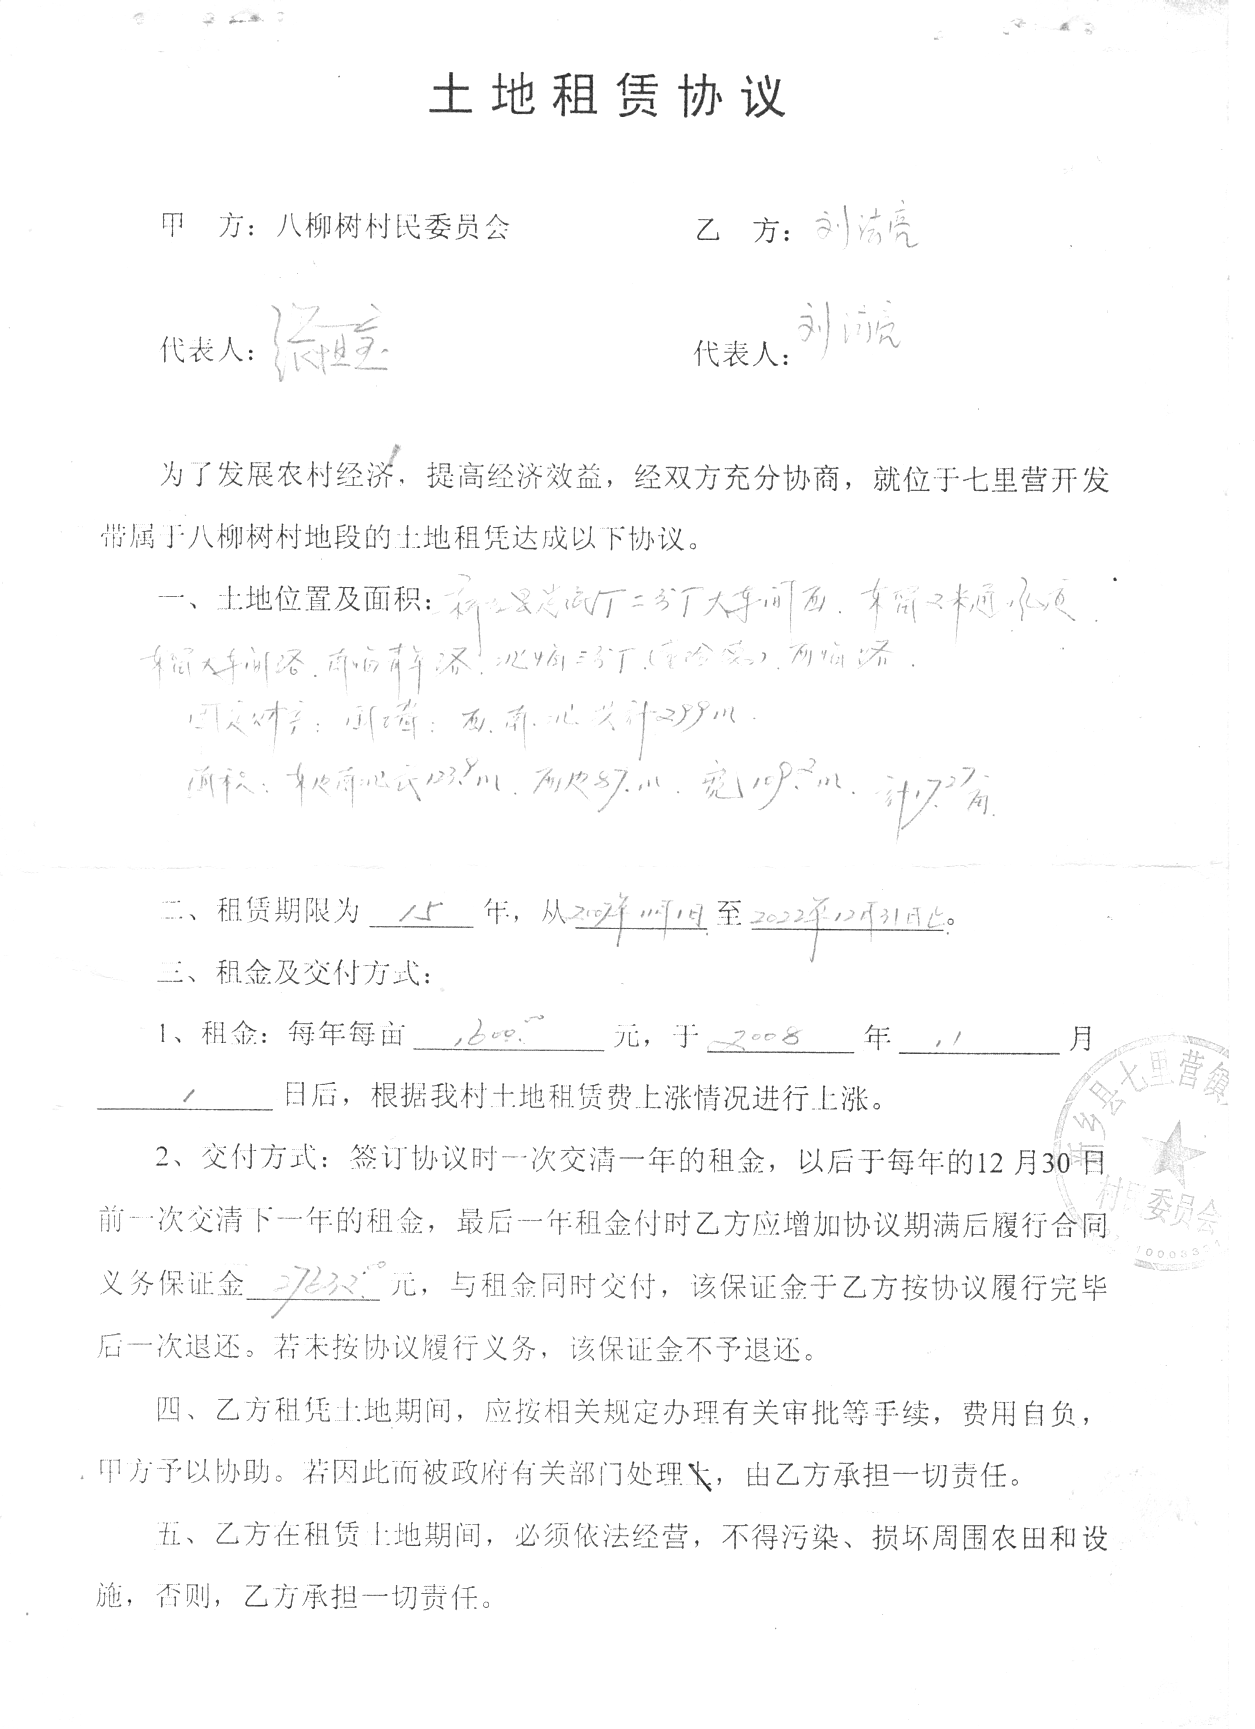 土地租赁协议
甲 方：八柳树村民委员会 乙 方：刘洁亮
代表人： 代表人：刘洁亮
为了发展农村经济，提高经济效益，经双方充分协商，就位于七里营开发
带属于八柳树村地段的土地租凭达成以下协议。
一、土地位置及面积：二分厂大车间西．
固定财产：围墙：西．南．北 共计299米．
面积：东边南北长123.4米．西边87.米．宽109.2米．计17.27亩
二、租赁期限为 15 年，从2007年11月1日至2022年12月31日止。
三、租金及交付方式：
1、租金：每年每亩 1600.00 元，于 2008 年 11 月
1 日后，根据我村土地租赁费上涨情况进行上涨。
2、交付方式：签订协议时一次交清一年的租金，以后于每年的12月30日
前一次交清下一年的租金，最后一年租金付时乙方应增加协议期满后履行合同
义务保证金 27632.00 元，与租金同时交付，该保证金于乙方按协议履行完毕
后一次退还。若未按协议履行义务，该保证金不予退还。
四、乙方租凭土地期间，应按相关规定办理有关审批等手续，费用自负，
甲方予以协助。若因此而被政府有关部门处理，由乙方承担一切责任。
五、乙方在租赁土地期间，必须依法经营，不得污染、损坏周围农田和设
施，否则，乙方承担一切责任。
新乡县七里营镇
村民委员会